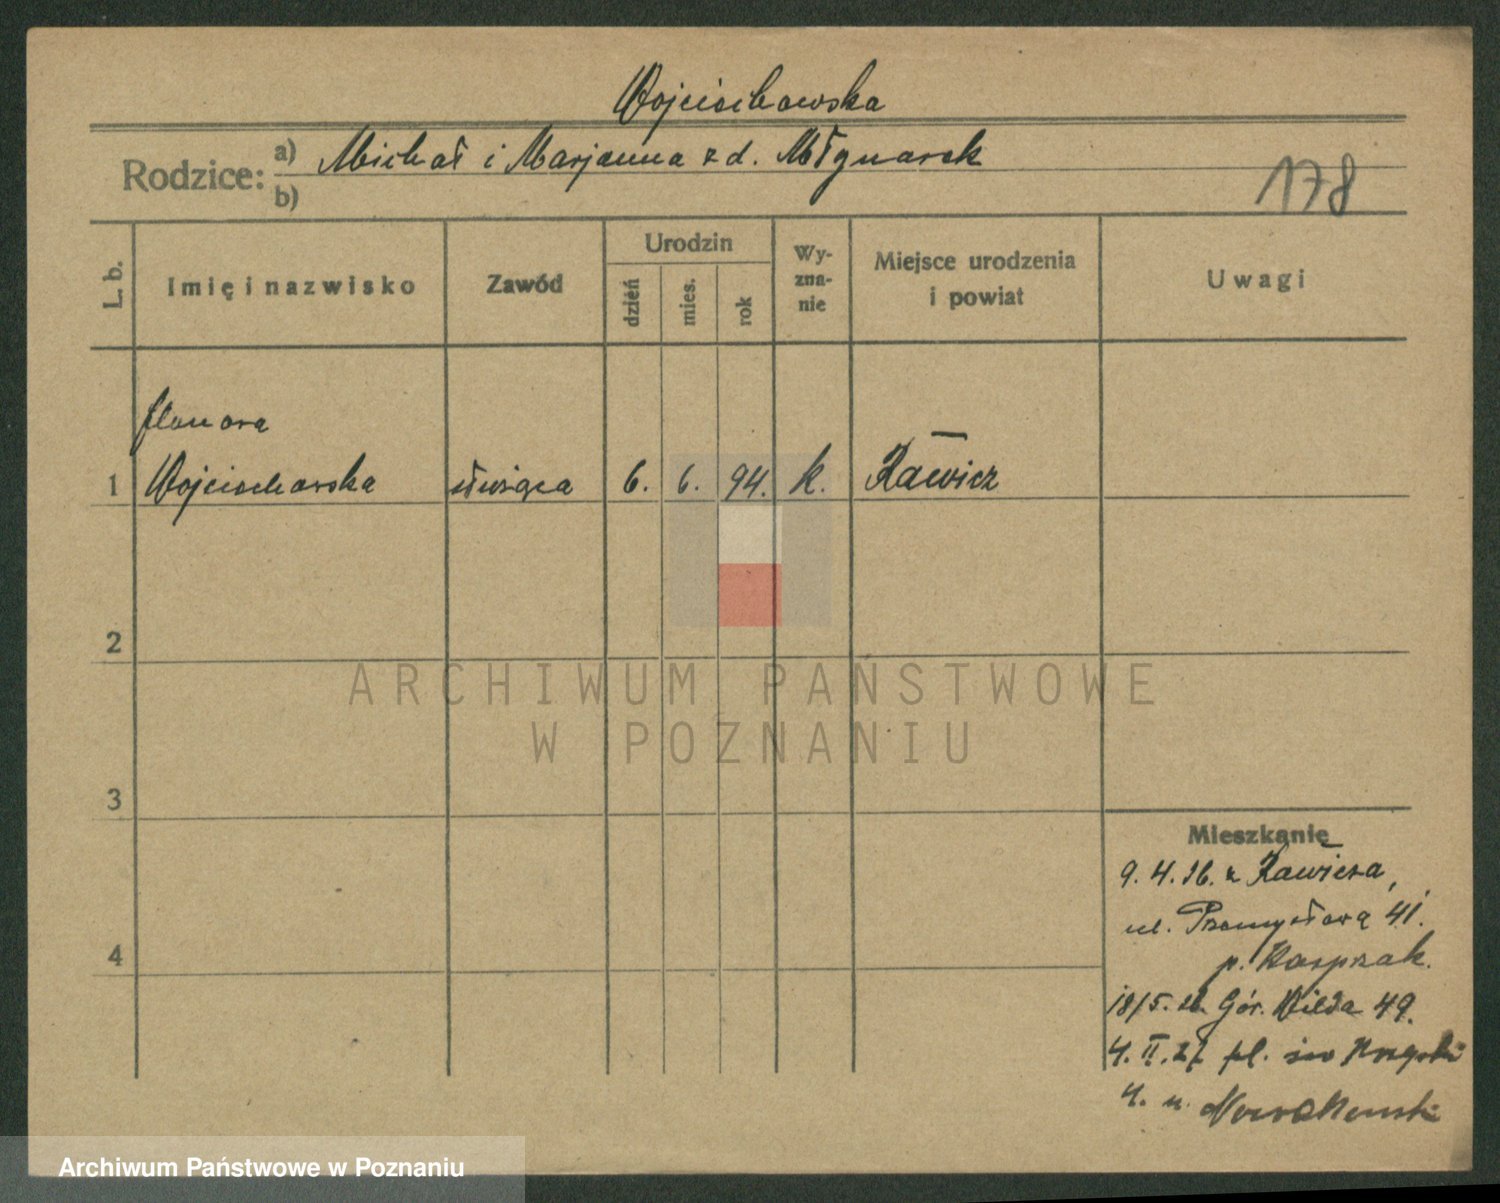 Wojciechowska
Rodzice: a) Michał i Marjanna z d. Młynarek
b)
178
L. b.
Imię i nazwisko
Zawód
Urodzin
dzień
mies.
rok
Wy-
zna-
nie
Miejsce urodzenia
i powiat
Uwagi
1 Wojciechowska służąca 6. 6. 94. k. Rawicz
2
ARCHIWUM PAŃSTWOWE
W POZNANIU
3
4
Mieszkanie
9. 4. 26. z Rawicza,
ul. Przemysłowa 41.
p. Kasprzak.
18/5. 26. Gór. Wilda 49.
4. II. 27 pl. 
4. u. 
Archiwum Państwowe w Poznaniu